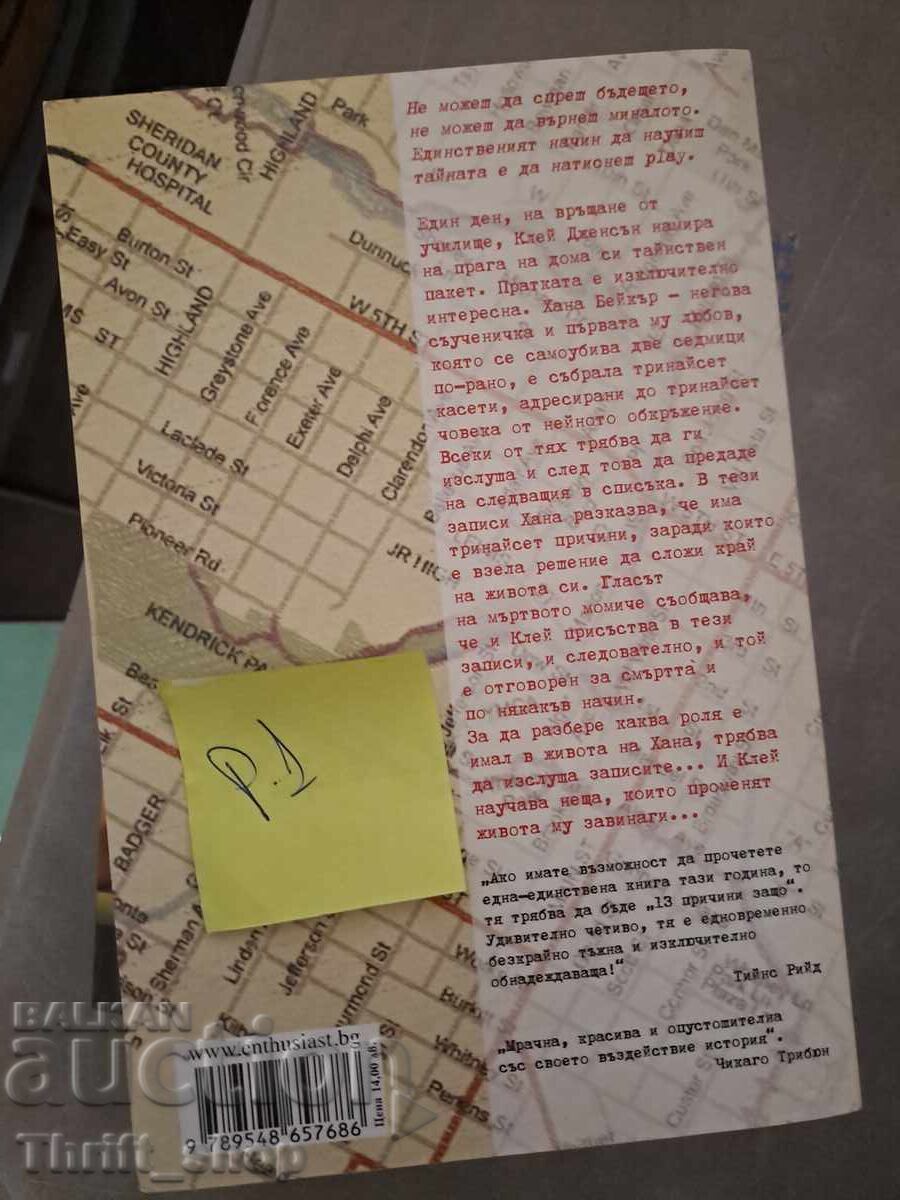 Не можеш да спреш бъдещето,
не можеш да върнеш миналото.
Единственият начин да научиш
тайната е да натиснеш play.
Един ден, на връщане от
училище, Клей Дженсън намира
на прага на дома си тайнствен
пакет. Пратката е изключително
интересна. Хана Бейкър – негова
съученичка и първата му любов,
която се самоубива две седмици
по-рано, е събрала тринайсет
касети, адресирани до тринайсет
човека от нейното обкръжение.
Всеки от тях трябва да ги
изслуша и след това да предаде
на следващия в списъка. В тези
записи Хана разказва, че има
тринайсет причини, заради които
е взела решение да сложи край
на живота си. Гласът
на мъртвото момиче съобщава,
че и Клей присъства в тези
записи, и следователно, и той
е отговорен за смъртта ѝ
по някакъв начин.
За да разбере каква роля е
имал в живота на Хана, трябва
да изслуша записите... И Клей
научава неща, които променят
живота му завинаги...
„Ако имате възможност да прочетете
една-единствена книга тази година, то
тя трябва да бъде „13 причини защо“.
Удивително четиво, тя е едновременно
безкрайно тъжна и изключително
обнадеждаваща!“
Тийнс Рийд
„Мрачна, красива и опустошителна
със своето въздействие история“.
Чикаго Трибюн
Park
HIGHLAND
SHERIDAN
COUNTY
HOSPITAL
Easy St
Burton St
Avon St
HIGHLAND
Greystone Ave
Florence Ave
Exeter Ave
Delphi Ave
W 5TH
Laclede St
Victoria St
Pioneer Rd
JR HIGH
KENDRICK
BADGER
P.1
www.enthusiast.bg
Цена 14,00 лв.
9 789548 657686
BALKAN
auction
Thrift_shop